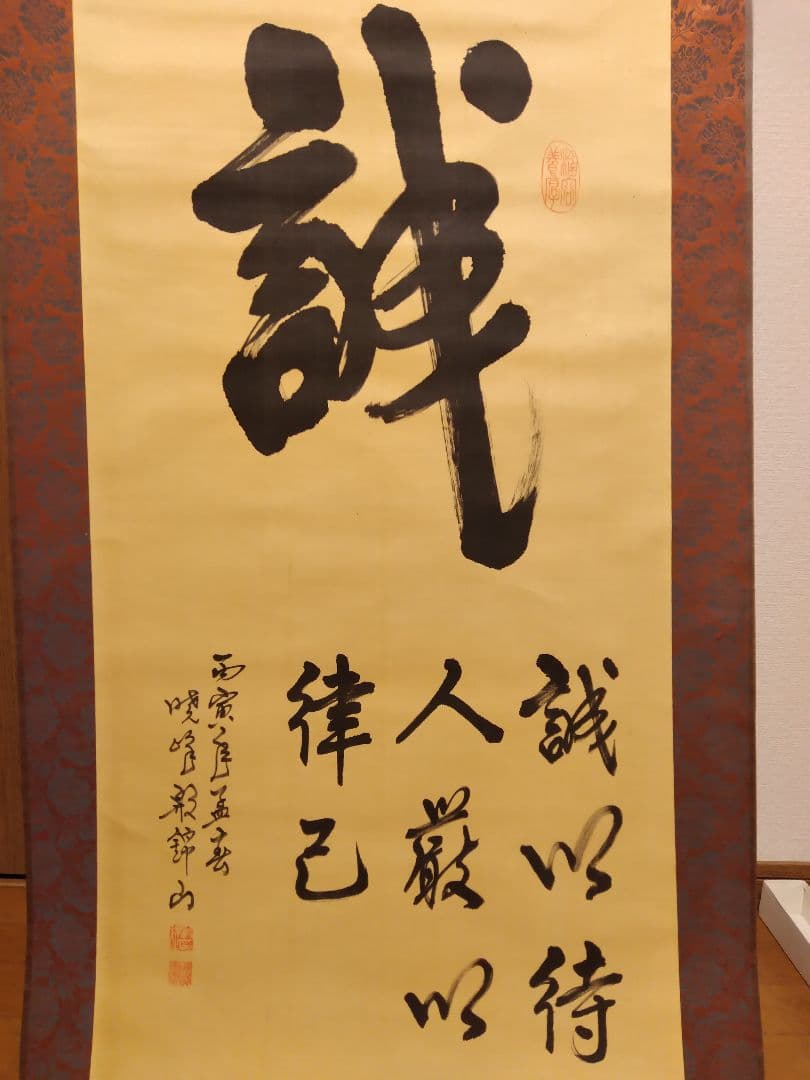 誠
誠以待
人嚴以
律己
丙寅年孟春
曉峰殷錦山